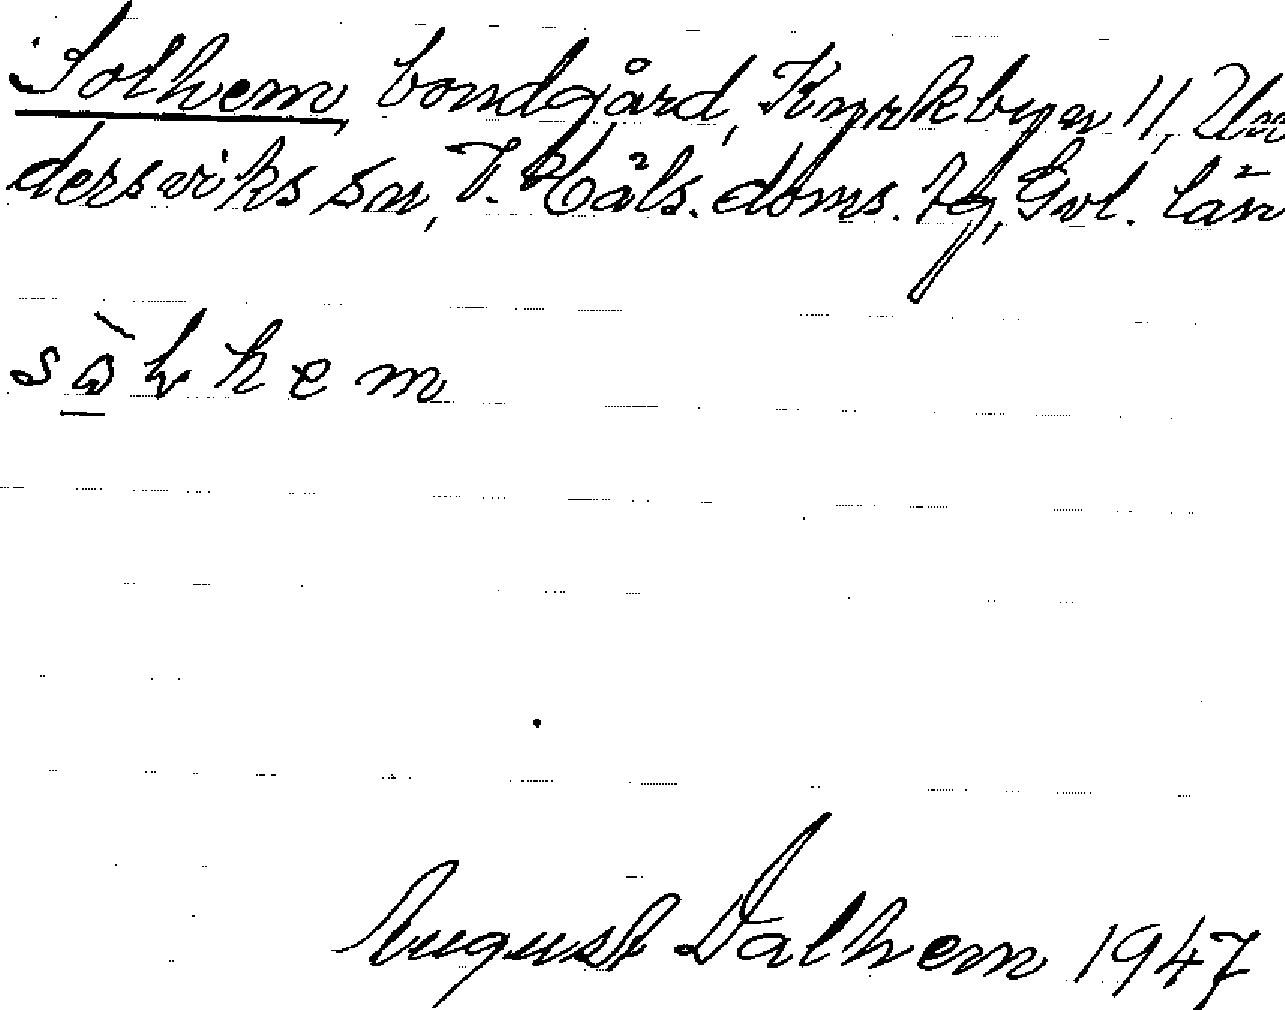 Solhem, bondgård, Kyrkbyn 11, Un
dersviks sn, V. Häls. doms. tg, Gvl. län
s o l h e m
August Dalhem 1947